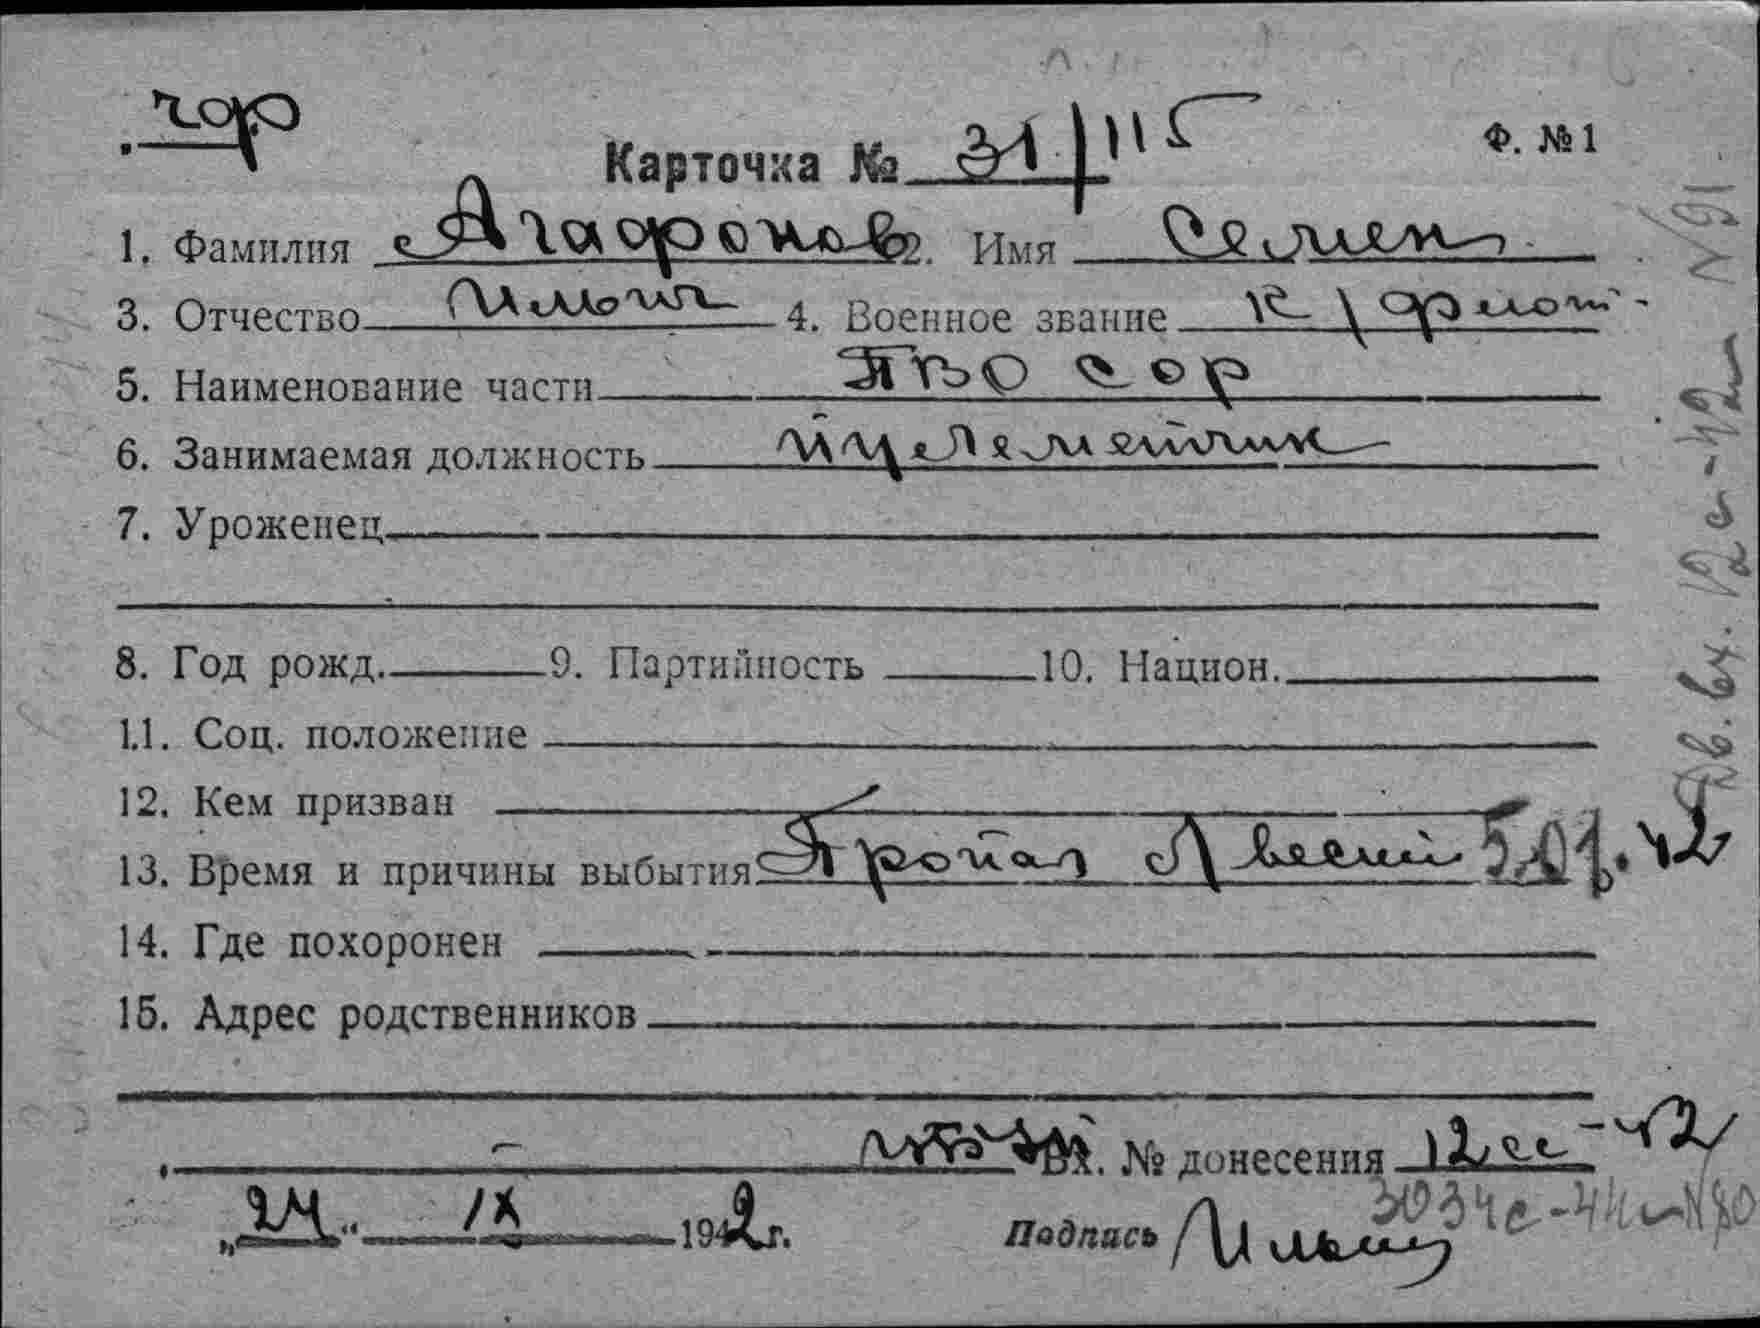 чор
Карточка № 31/115 Ф. № 1
1. Фамилия Агафонов 2. Имя Семен
3. Отчество Ильич 4. Военное звание к/флот
5. Наименование части ПВО сор
6. Занимаемая должность пулеметчик
7. Уроженец
8. Год рожд. 9. Партийность 10. Национ.
11. Соц. положение
12. Кем призван
13. Время и причины выбытия Пропал без вести 5.01.42
14. Где похоронен
15. Адрес родственников
Вх. № донесения 12сс-42
"24" IX 1942 г. Подпись